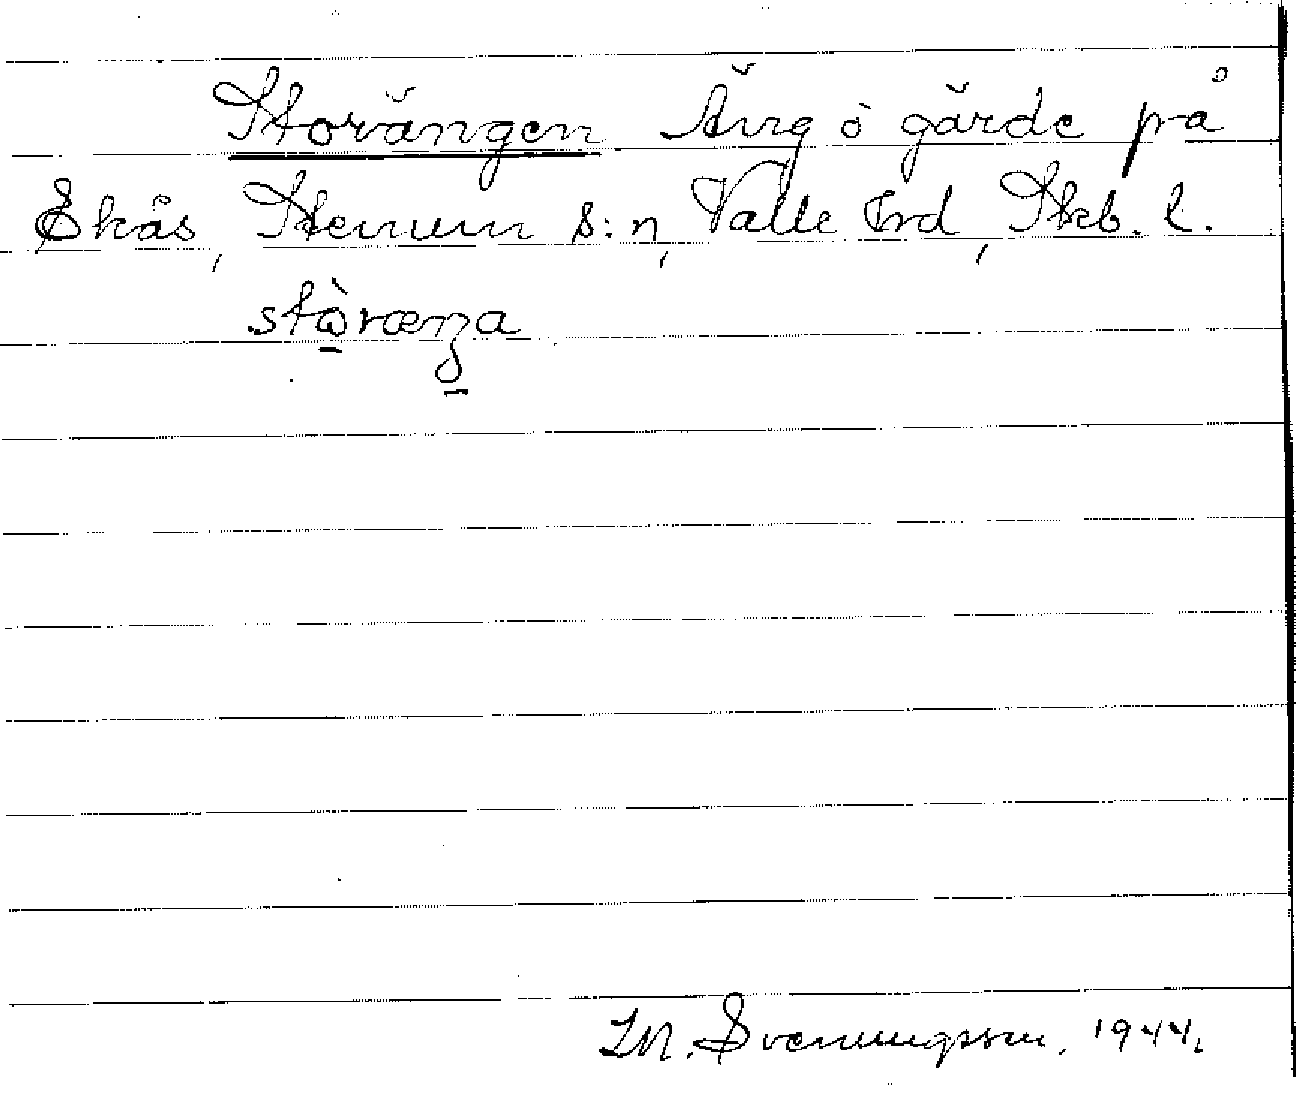 Storängen Äng o gärde på
Ekås, Stenum s:n, Valle hrd, Skb. l.
stòræŋa
M. Svenningsson, 1944.